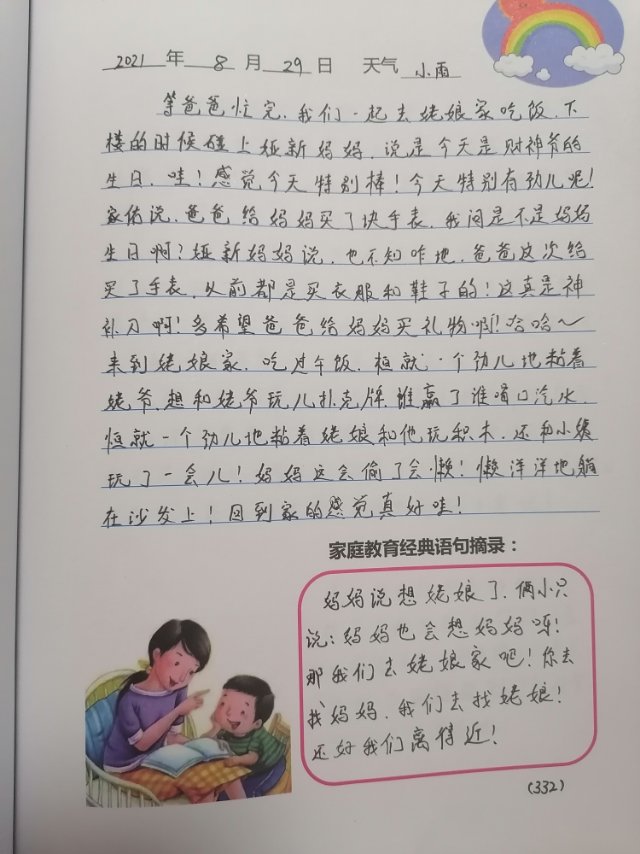 2021 年 8 月 29 日 天气 小雨
等爸爸忙完,我们一起去姥娘家吃饭,下
楼的时候碰上娅新妈妈,说是今天是财神爷的
生日,哇!感觉今天特别棒!今天特别有劲儿呢!
家佑说,爸爸给妈妈买了块手表,我问是不是妈妈
生日啊?娅新妈妈说,也不知咋地,爸爸这次给
买了手表,以前都是买衣服和鞋子的!这真是神
补刀啊!多希望爸爸给妈妈买礼物啊!哈哈~
来到姥娘家,吃过午饭,桓就一个劲儿地粘着
姥爷,想和姥爷玩儿扑克牌,谁赢了谁喝口汽水,
恒就一个劲儿地粘着姥娘和他玩积木,还和小媛
玩了一会儿!妈妈这会偷了会懒!懒洋洋地躺
在沙发上!回到家的感觉真好哇!
家庭教育经典语句摘录:
妈妈说想姥娘了,俩小只
说:妈妈也会想妈妈呀!
那我们去姥娘家吧!你去
找妈妈,我们去找姥娘!
还好我们离得近!
(332)